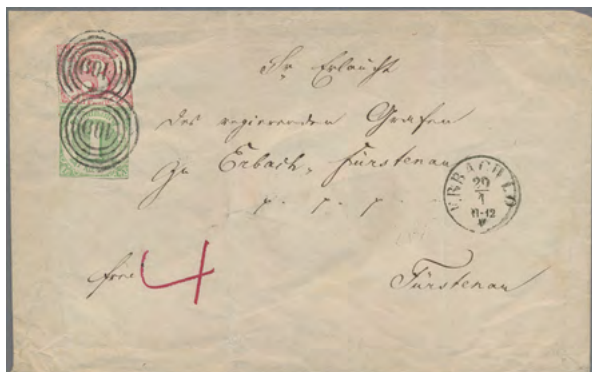 Sr Erlaucht
des regierenden Grafen
Zu Erbach, Fürstenau
p. p. p.
ERBACH I. O
29
1
11-12
frei 4
Fürstenau